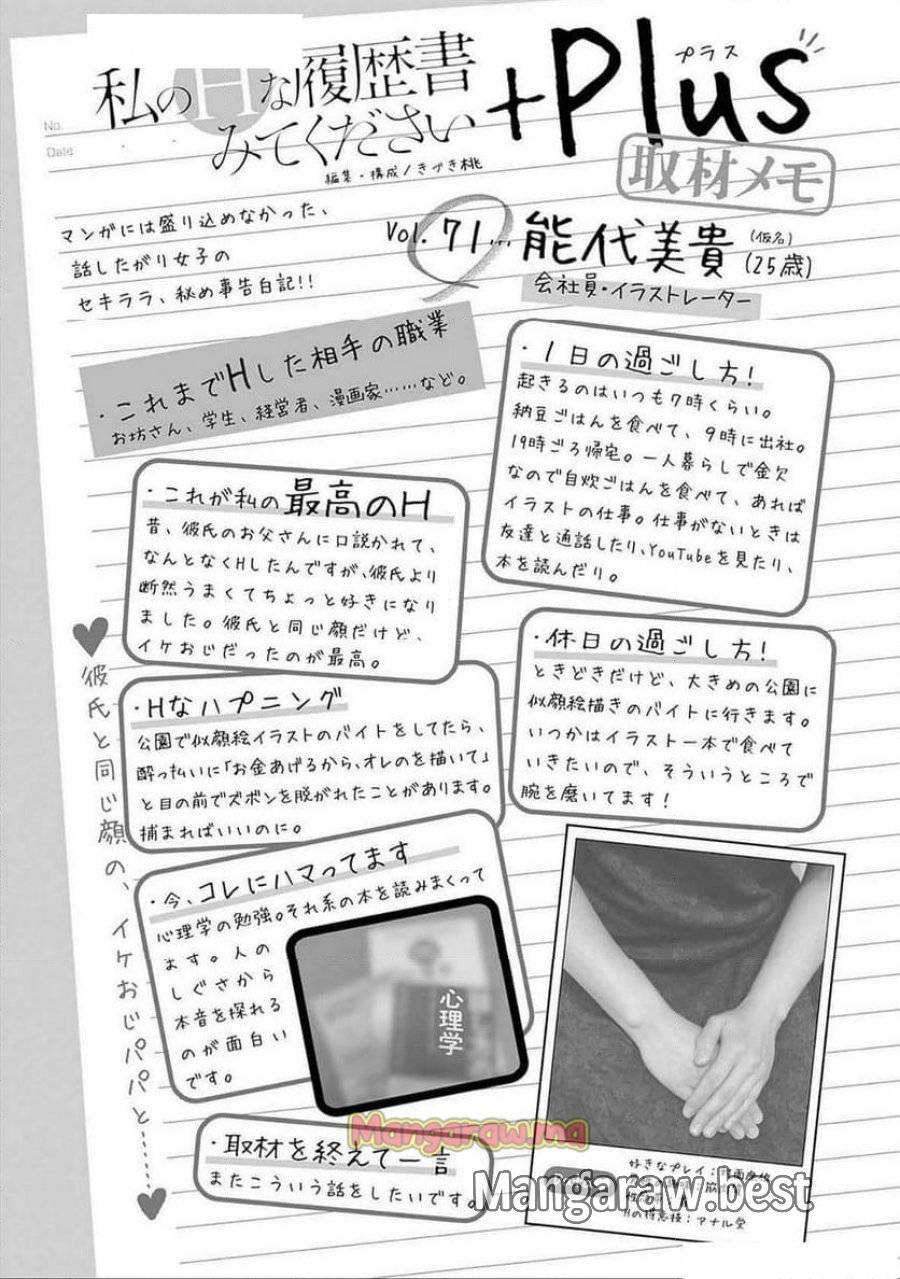 No.
Date
私のHな履歴書
みてください
+Plus
プラス
編集・構成/きづき桃
取材メモ
マンガには盛り込めなかった、
話したがり女子の
セキララ、秘め事告白記!!
Vol.71…能代美貴(仮名)(25歳)
会社員・イラストレーター
・これまでHした相手の職業
お坊さん、学生、経営者、漫画家……など。
・1日の過ごし方!
起きるのはいつも7時くらい。
納豆ごはんを食べて、9時に出社。
19時ごろ帰宅。一人暮らしで金欠
なので自炊ごはんを食べて、あれば
イラストの仕事。仕事がないときは
友達と通話したり、YouTubeを見たり、
本を読んだり。
・これが私の最高のH
昔、彼氏のお父さんに口説かれて、
なんとなくHしたんですが、彼氏より
断然うまくてちょっと好きになり
ました。彼氏と同じ顔だけど、
イケおじだったのが最高。
・休日の過ごし方!
ときどきだけど、大きめの公園に
似顔絵描きのバイトに行きます。
いつかはイラスト一本で食べて
いきたいので、そういうところで
腕を磨いてます!
・Hなハプニング
公園で似顔絵イラストのバイトをしてたら、
酔っ払いに「お金あげるから、オレのを描いて」
と目の前でズボンを脱がれたことがあります。
捕まればいいのに。
♥彼氏と同じ顔の、イケおじパパと……♥
・今、コレにハマってます
心理学の勉強。それ系の本を読みまくって
ます。人の
しぐさから
本音を探れる
のが面白い
です。
心理学
・取材を終えて一言
またこういう話をしたいです。
好きなプレイ:
Hの得意技:アナル堂
Mangaraw.ma
Mangaraw.best